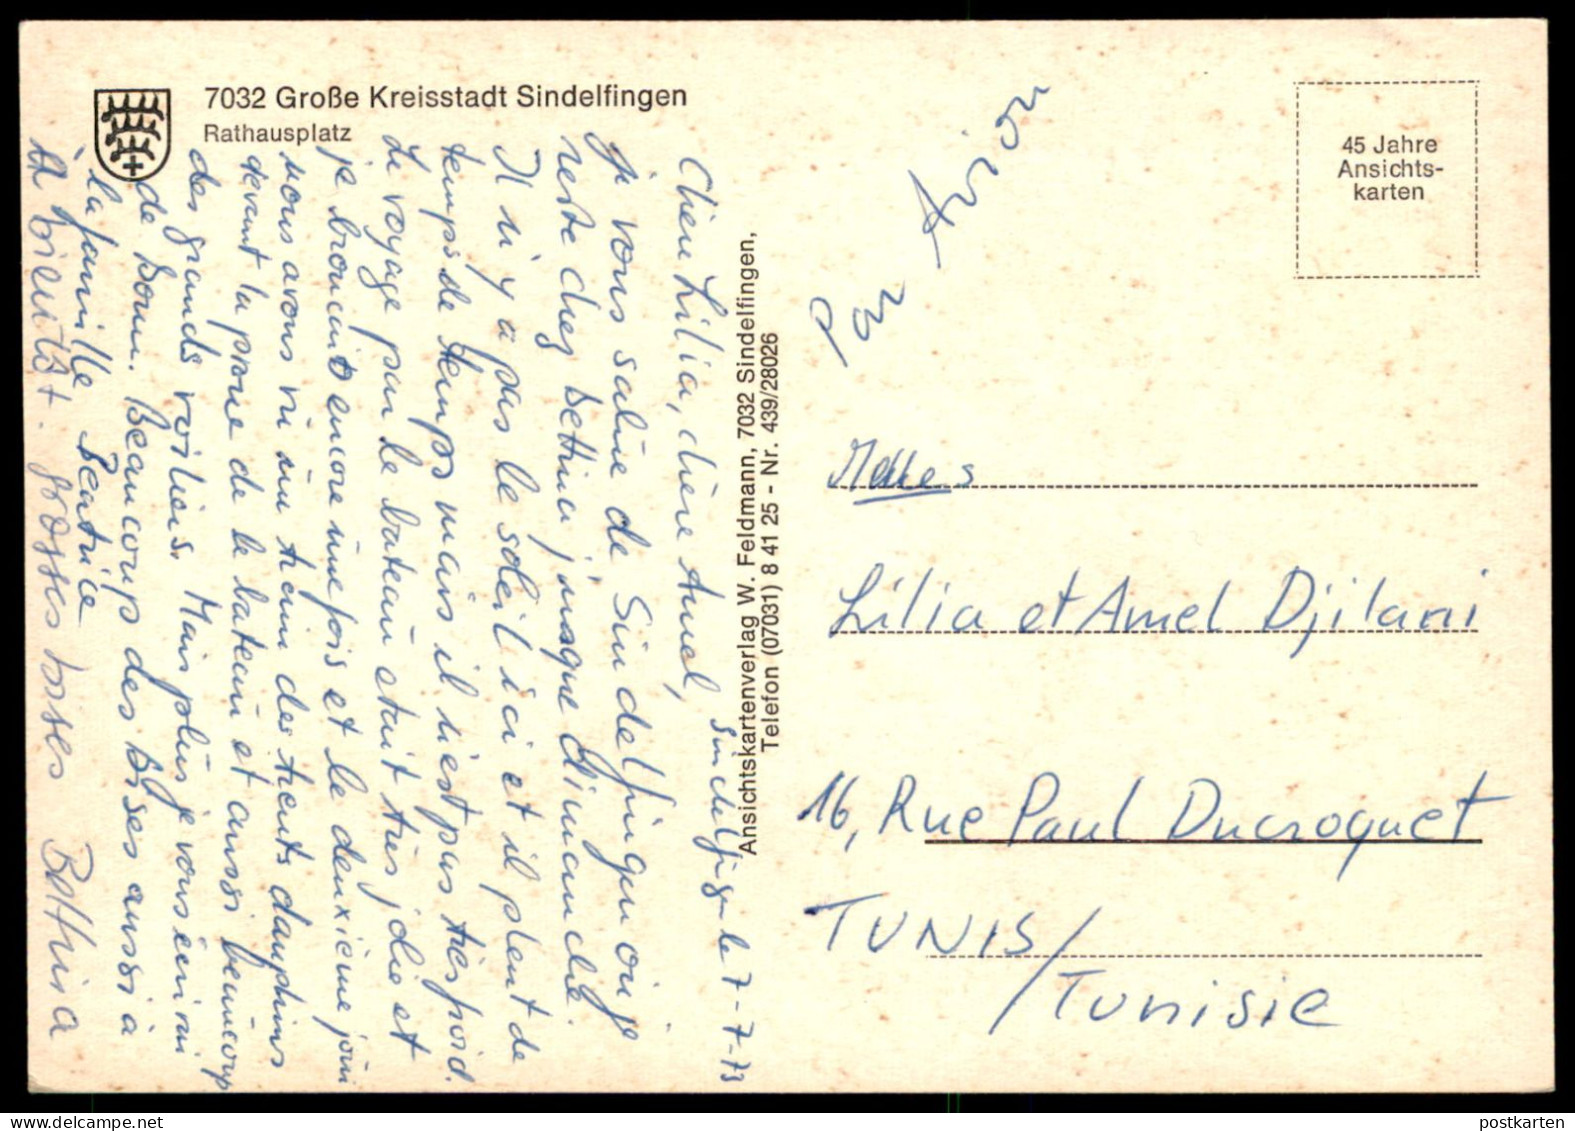 7032 Große Kreisstadt Sindelfingen
Rathausplatz
45 Jahre
Ansichts-
karten
Par Avion
Sindelfingen le 7-7-73
Chère Lilia, chère Amel,
je vous salue de Sindelfingen où je
reste chez Bettina jusque dimanche.
Il n'y a pas le soleil ici et il pleut de
temps de temps mais il n'est pas très froid.
Le voyage par le bateau etait tres jolie et
je encore une fois et le deuxième jour
nous avons vu un des dauphins
devant la proue de le bateau et aussi beaucoup
des grands voiliers. Mais plus je vous écrirai
de Bonn. Beaucoup des bises aussi à
la famille Beatrice
A bientôt. grosses bises Bettina
Ansichtskartenverlag W. Feldmann, 7032 Sindelfingen,
Telefon (07031) 8 41 25 - Nr. 439/28026
Melles
Lilia et Amel Djilani
16, Rue Paul Ducroquet
TUNIS/
Tunisie
postkarten